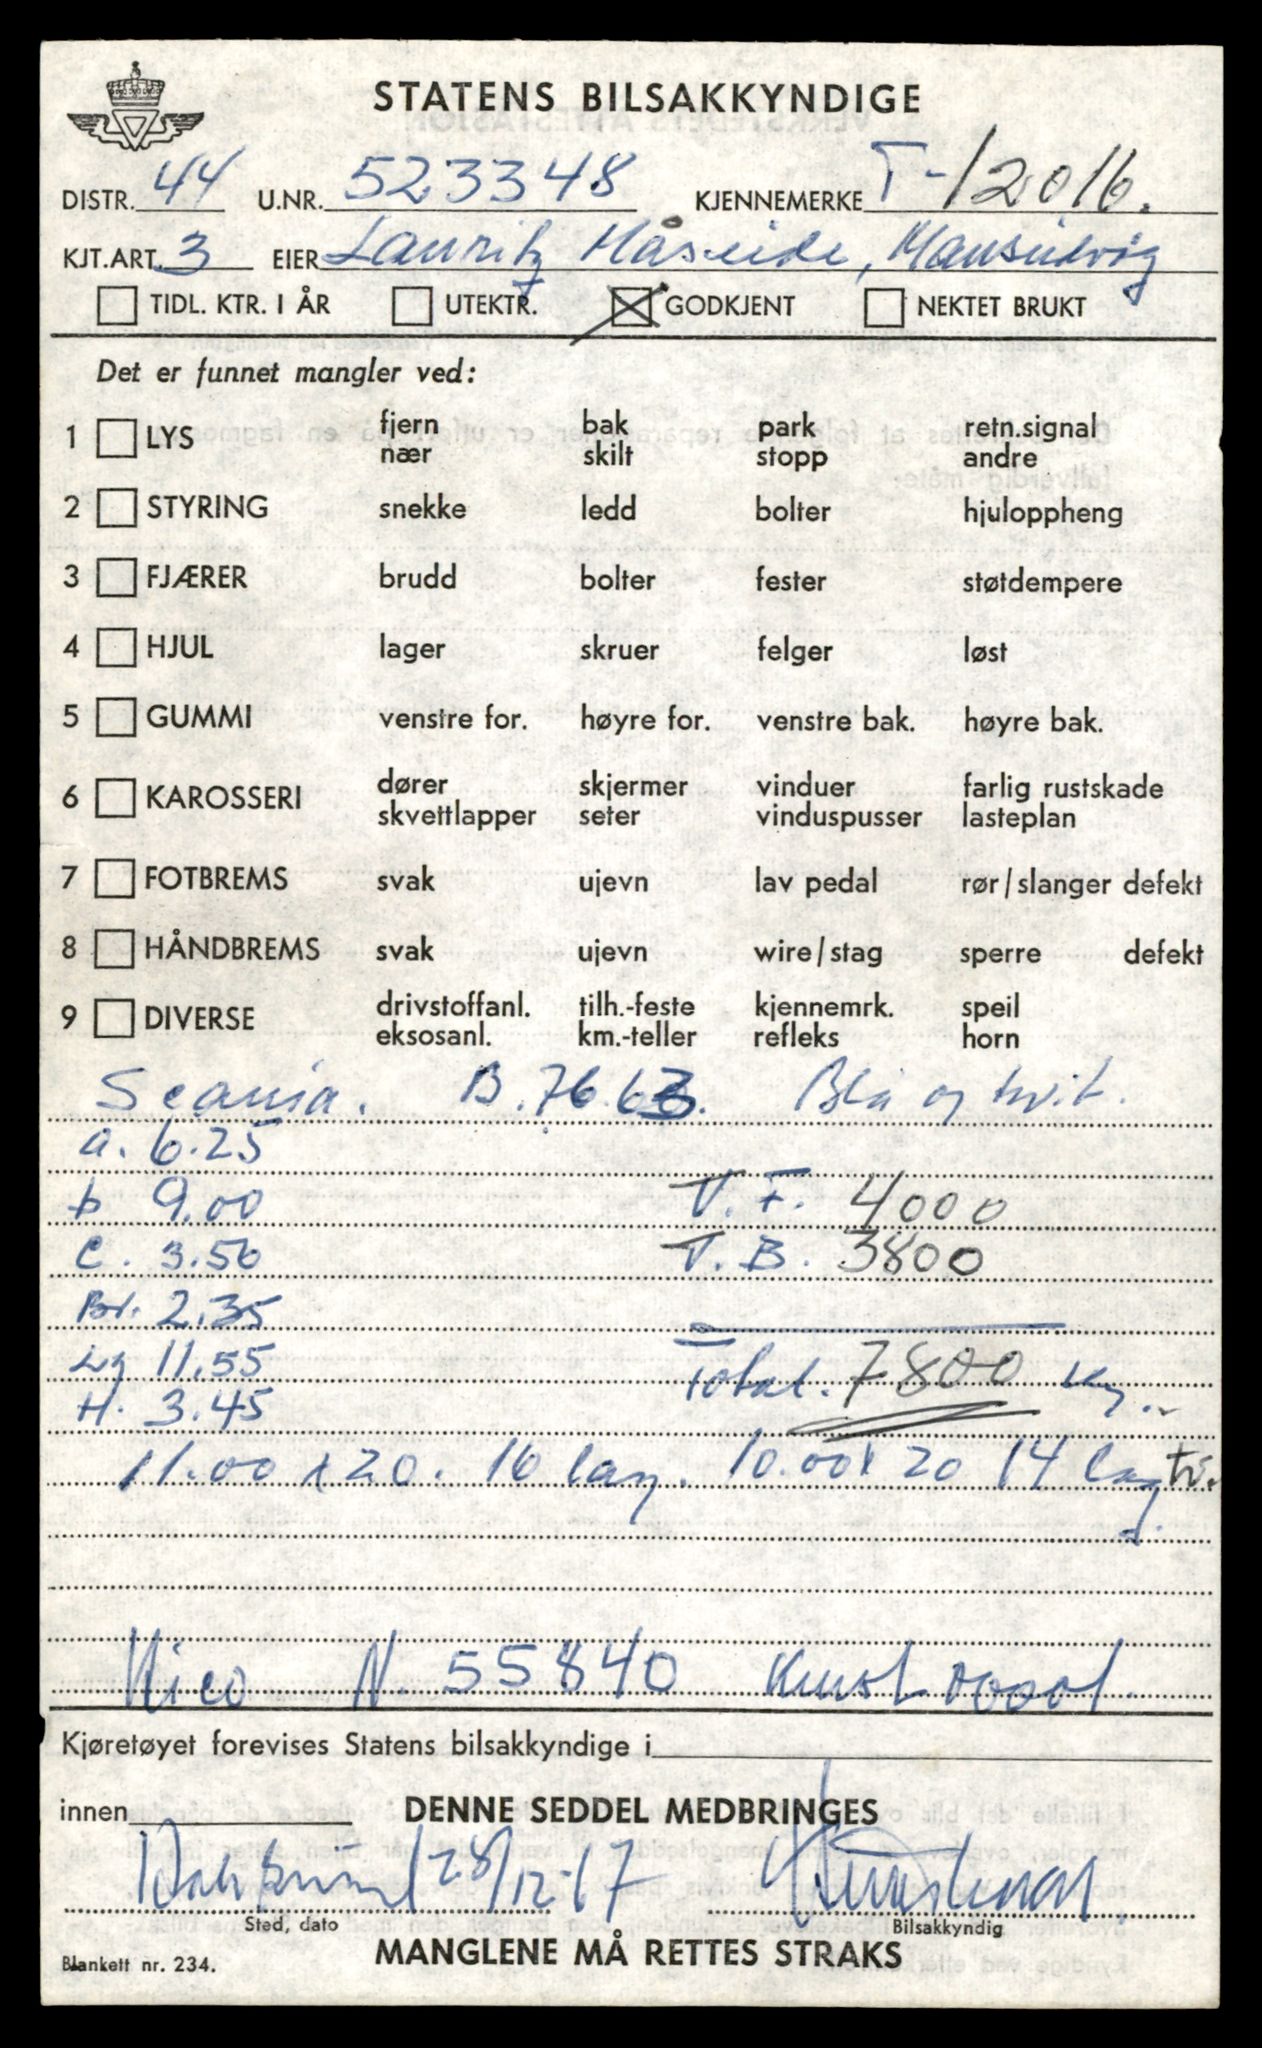 STATENS BILSAKKYNDIGE
DISTR. 44 U.NR. 523348 KJENNEMERKE T-12016.
KJT.ART. 3 EIER Lauritz Håseide, Mauseidvåg
TIDL. KTR. I ÅR UTEKTR. GODKJENT NEKTET BRUKT
Det er funnet mangler ved:
1 LYS fjern bak park retn.signal
nær skilt stopp andre
2 STYRING snekke ledd bolter hjuloppheng
3 FJÆRER brudd bolter fester støtdempere
4 HJUL lager skruer felger løst
5 GUMMI venstre for. høyre for. venstre bak. høyre bak.
6 KAROSSERI dører skjermer vinduer farlig rustskade
skvettlapper seter vinduspusser lasteplan
7 FOTBREMS svak ujevn lav pedal rør/slanger defekt
8 HÅNDBREMS svak ujevn wire/stag sperre defekt
9 DIVERSE drivstoffanl. tilh.-feste kjennemrk. speil
eksosanl. km.-teller refleks horn
Scania. B.76.63. Blå og hvit.
a. 6.25
b 9.00 T. F. 4000
C. 3.50 T. B. 3800
Br. 2.35
Lg 11.55 Total. 7800 kg.
H. 3.45
11.00 x 20. 16 lag. 10.00 x 20 14 lag tv.
N. 55840
Kjøretøyet forevises Statens bilsakkyndige i
innen DENNE SEDDEL MEDBRINGES
28/12-67
Sted, dato Bilsakkyndig
Blankett nr. 234. MANGLENE MÅ RETTES STRAKS